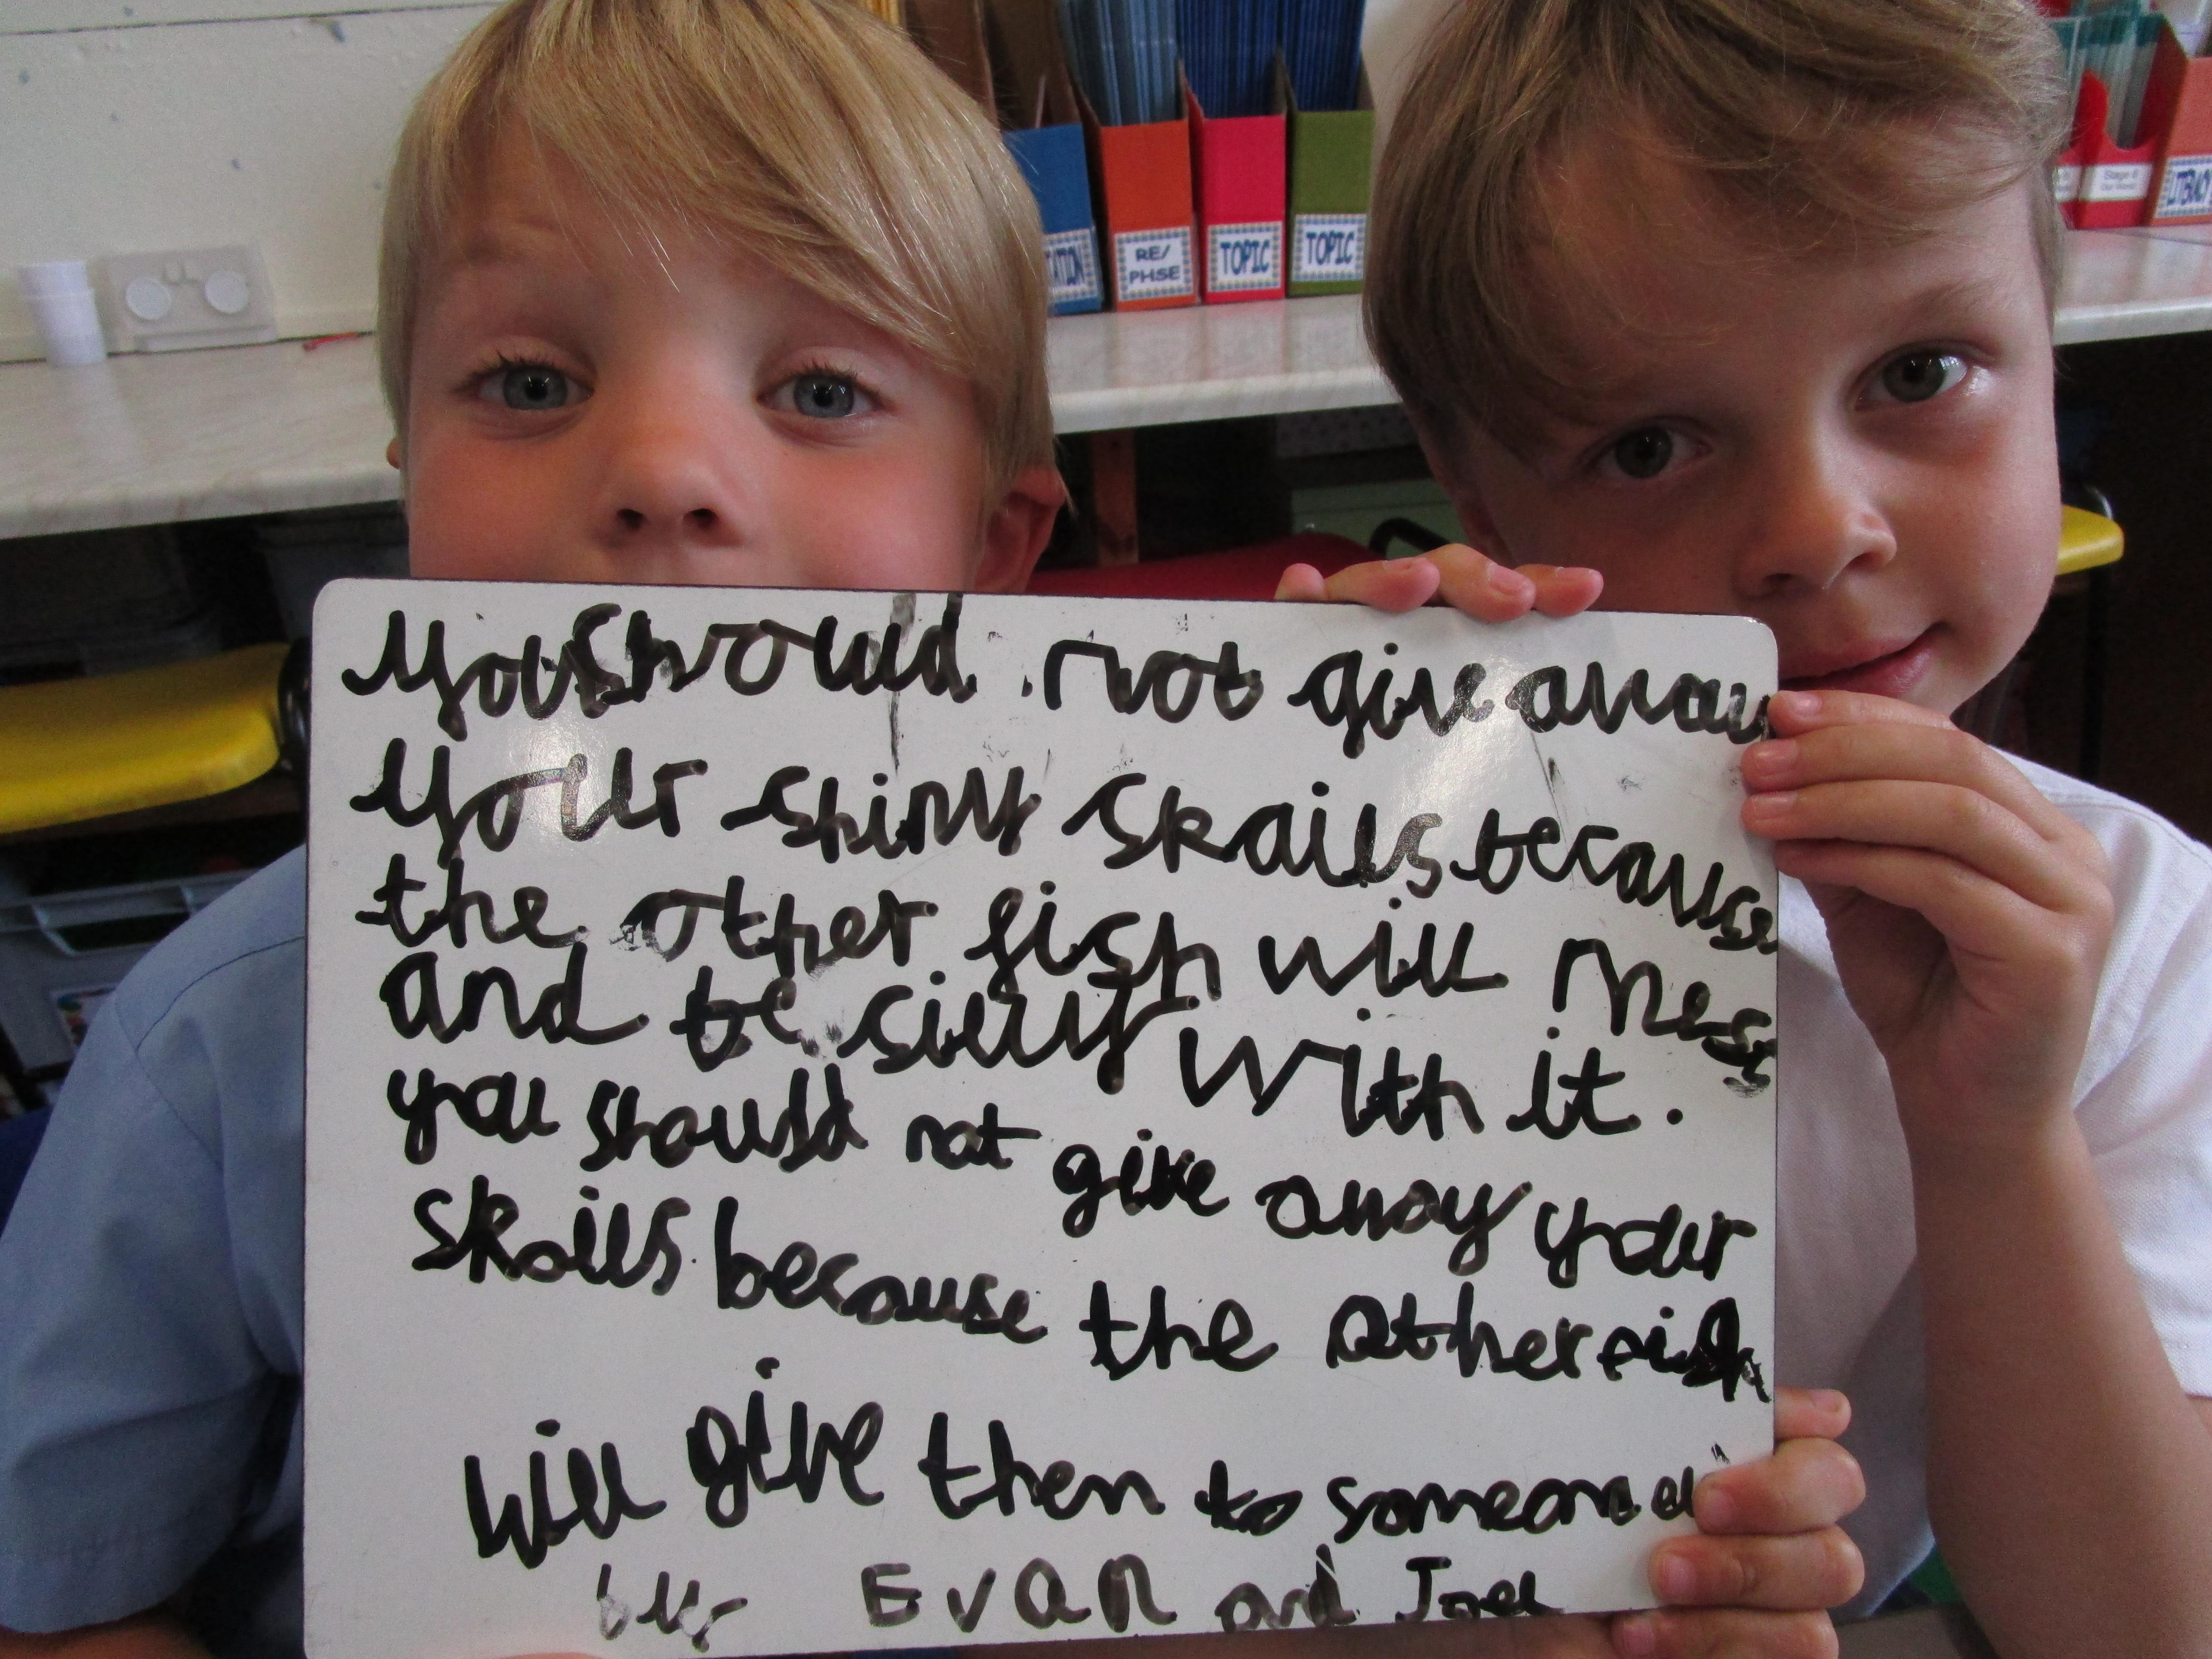 RE/
PHSE
TOPIC
TOPIC
Stage 6
you should not give away
your shiny skails because
the other fish will mess
and be silly with it.
you should not give away your
skails because the other fish
will give them to someone
by Evan and Joel